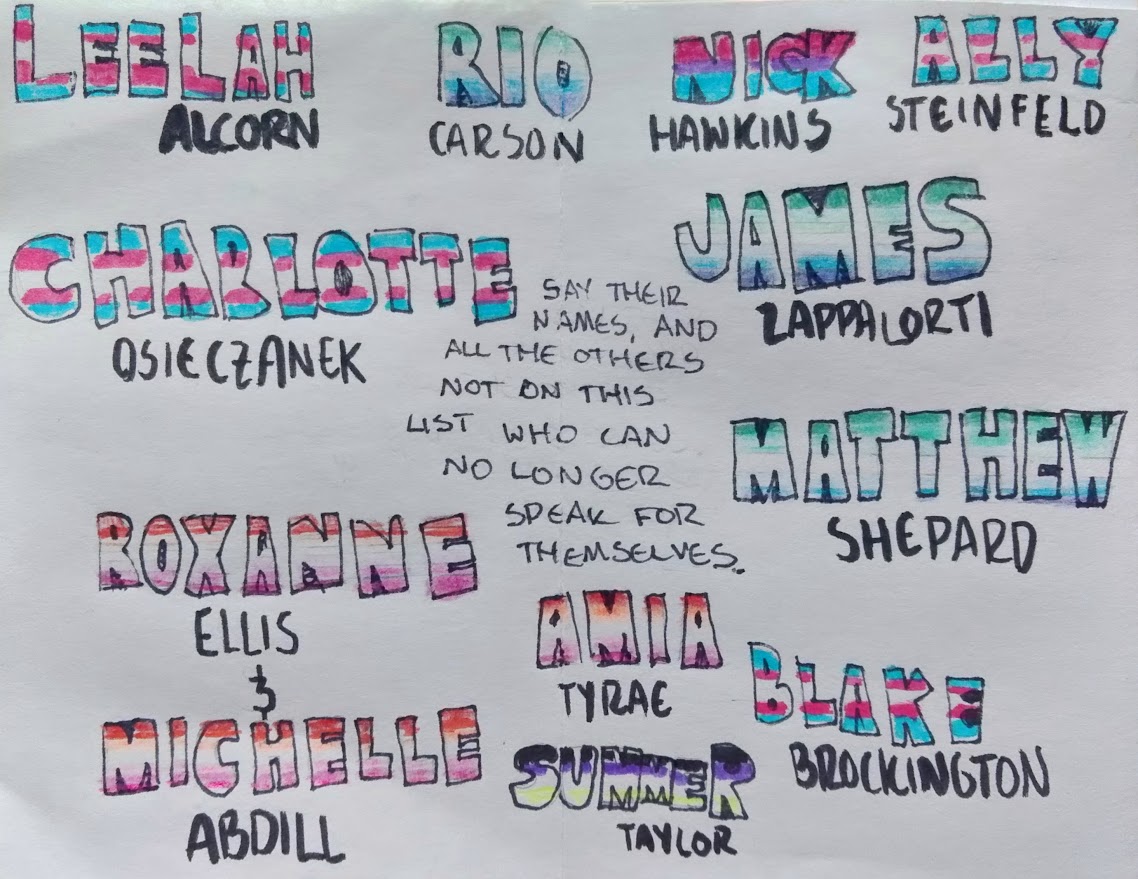 LEELAH
ALCORN
RIO
CARSON
NICK
HAWKINS
ALLY
STEINFELD
CHARLOTTE
OSIECZANEK
JAMES
ZAPPALORTI
SAY THEIR
NAMES, AND
ALL THE OTHERS
NOT ON THIS
LIST WHO CAN
NO LONGER
SPEAK FOR
THEMSELVES.
MATTHEW
SHEPARD
ROXANNE
ELLIS
&
MICHELLE
ABDILL
AMIA
TYRAE
BLAKE
BROCKINGTON
SUMMER
TAYLOR